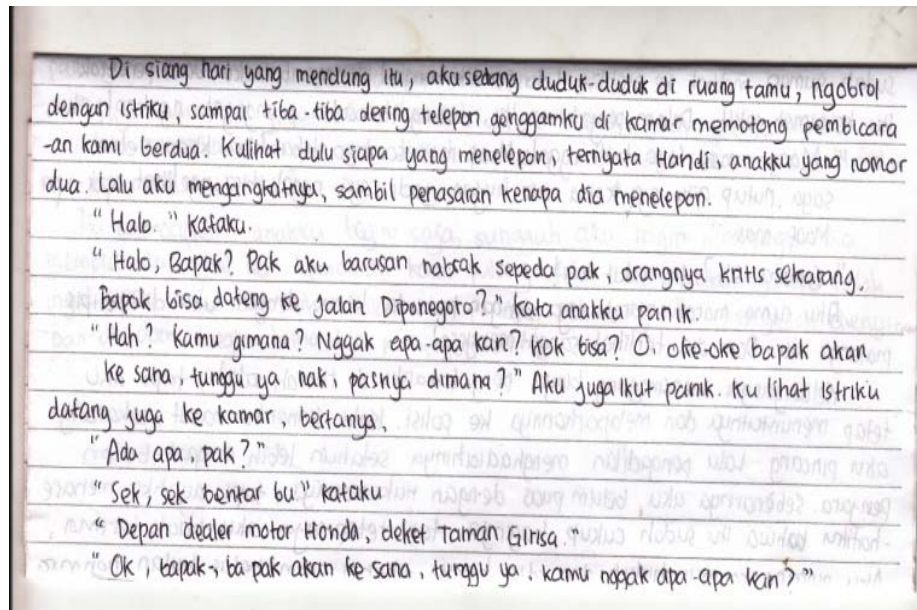 Di siang hari yang mendung itu, aku sedang duduk-duduk di ruang tamu, ngobrol
dengan istriku, sampai tiba-tiba dering telepon genggamku di kamar memotong pembicara
-an kami berdua. Kulihat dulu siapa yang menelepon, ternyata Handi, anakku yang nomor
dua. Lalu aku mengangkatnya, sambil penasaran kenapa dia menelepon.
"Halo." Kataku.
"Halo, Bapak? Pak aku barusan nabrak sepeda pak, orangnya kritis sekarang.
Bapak bisa dateng ke jalan Diponegoro?" kata anakku panik.
"Hah? Kamu gimana? Nggak apa-apa kan? kok bisa? O, oke-oke bapak akan
ke sana, tunggu ya nak, pasnya dimana?" Aku juga ikut panik. Ku lihat istriku
datang juga ke kamar bertanya.
"Ada apa, pak?"
"Sek, sek bentar bu." kataku
"Depan dealer motor Honda, deket Taman Girisa.
"Ok, bapak, bapak akan ke sana, tunggu ya. kamu nggak apa-apa kan?"